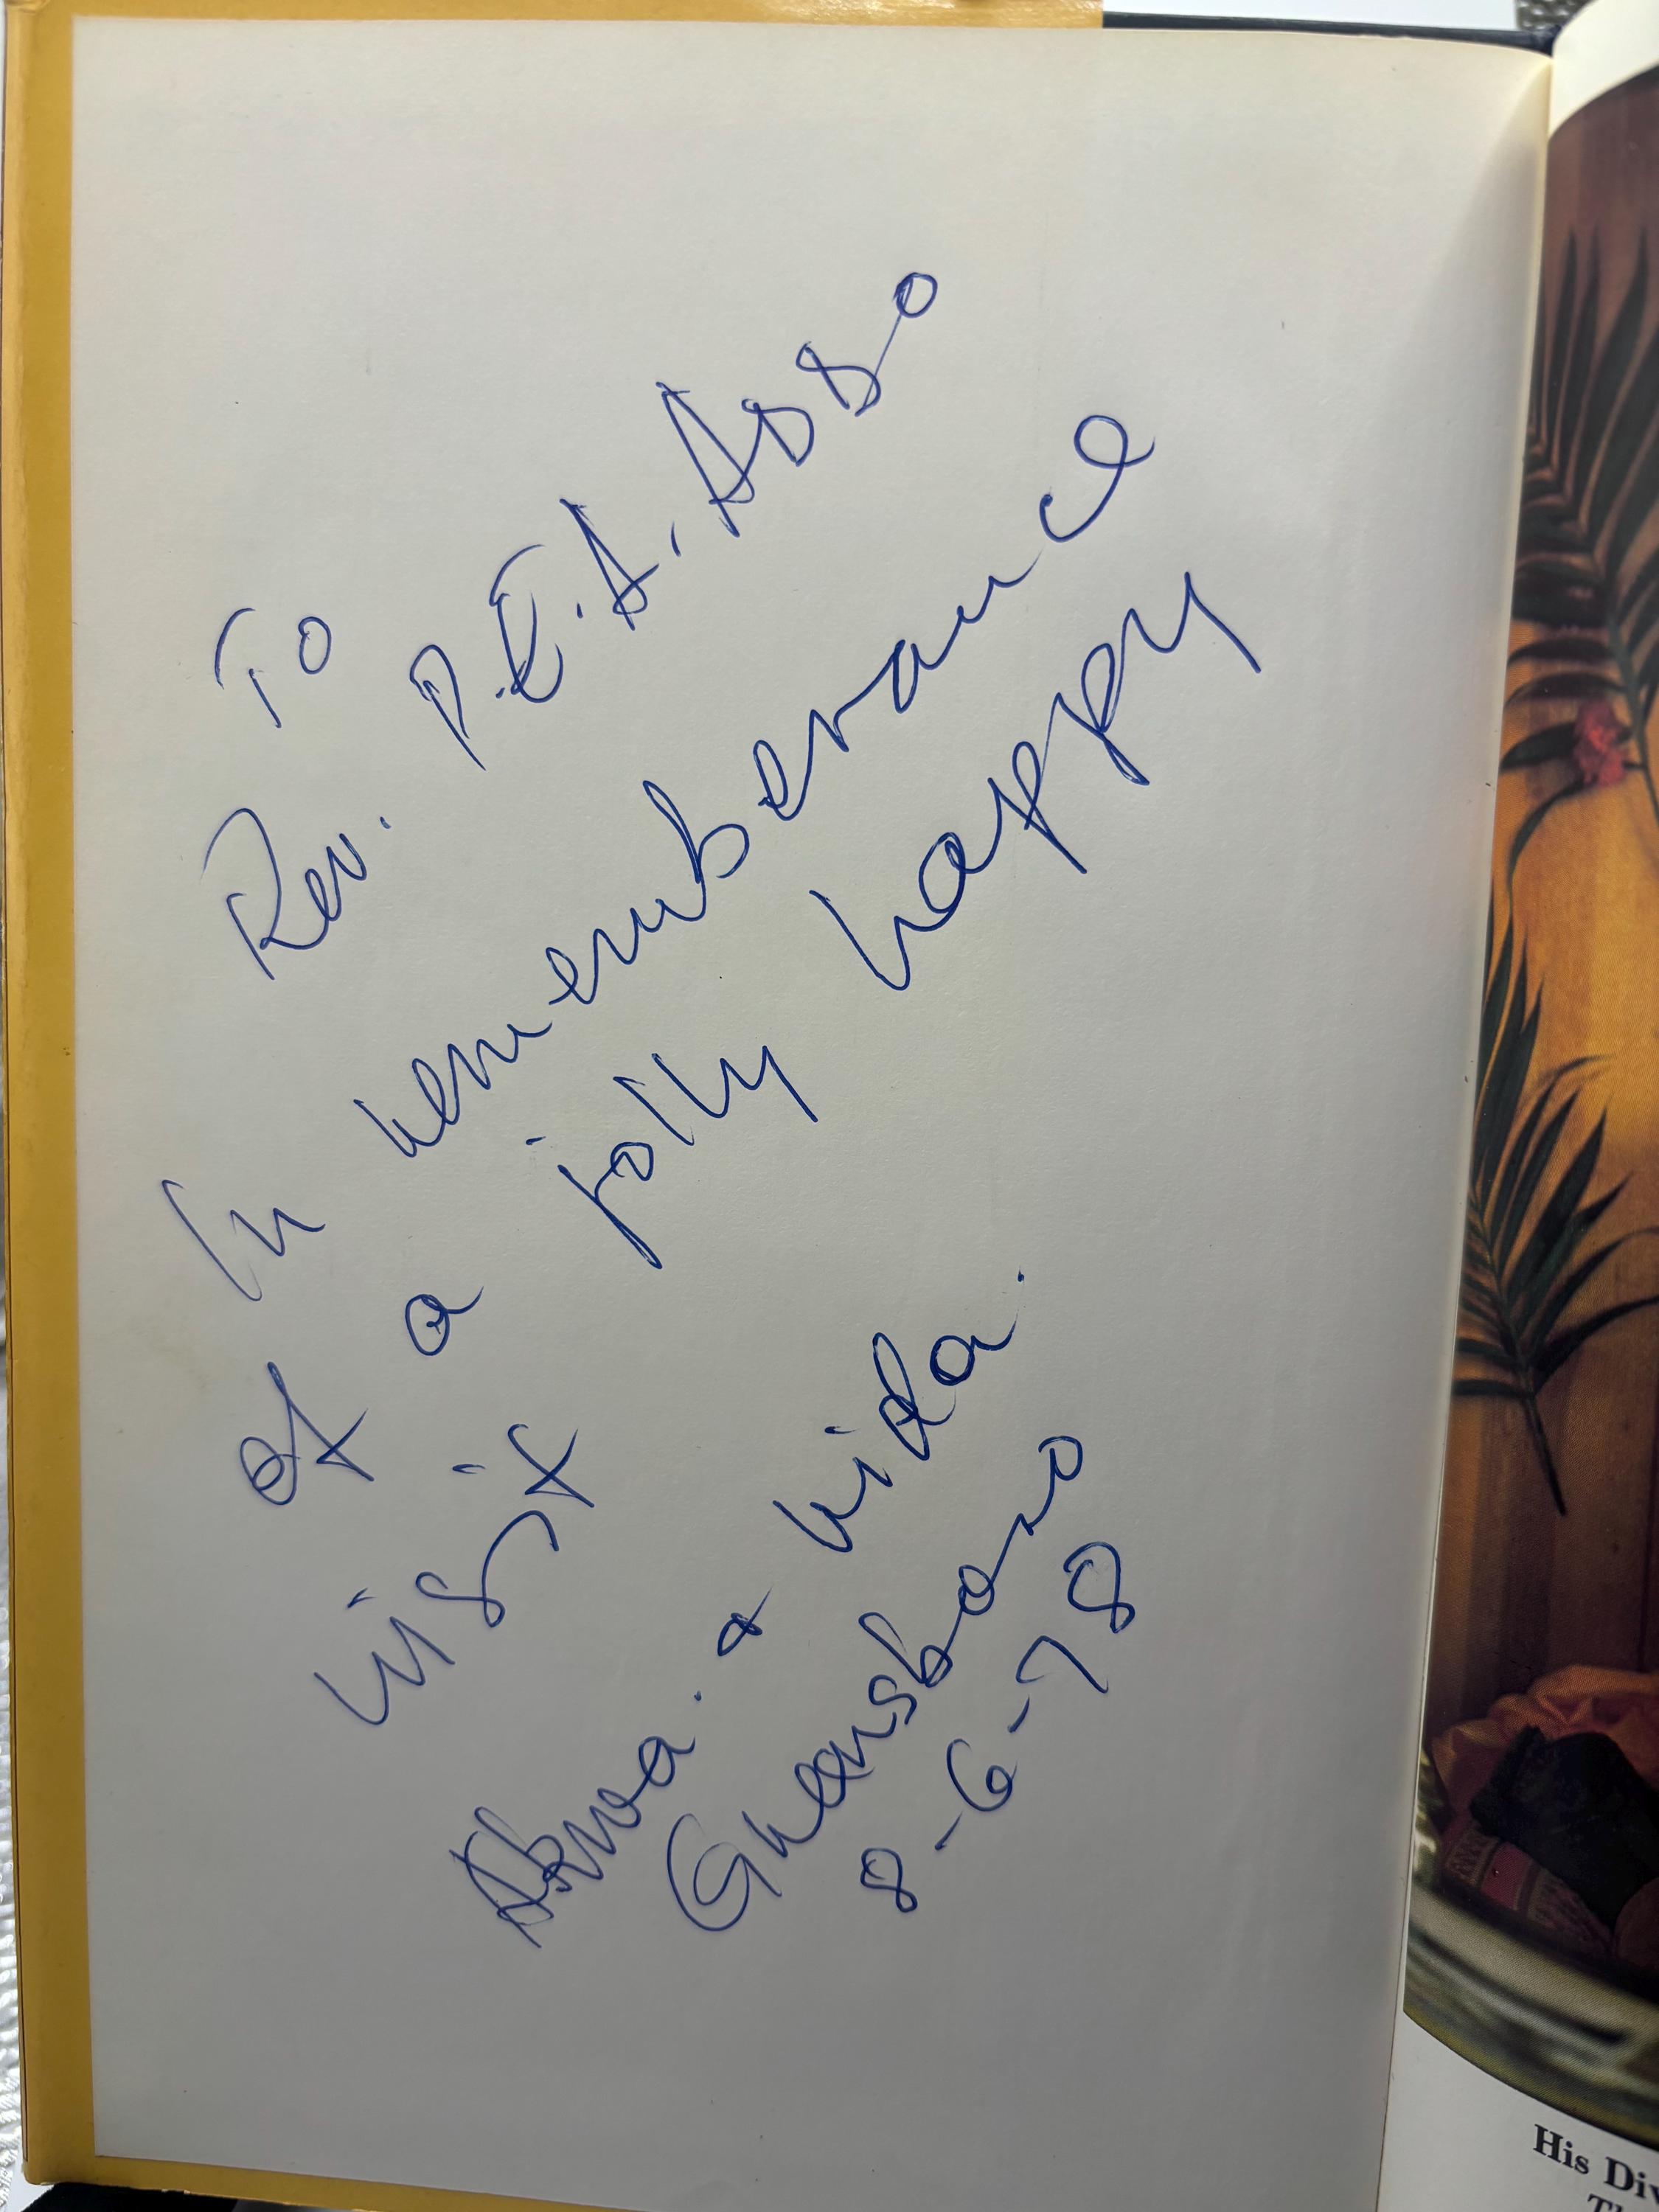 To
Rev. P.E.A. Asso
In rememberance
of a jolly happy
visit
Akwa. & Vida.
Greensboro
8-6-78
His Div
Th